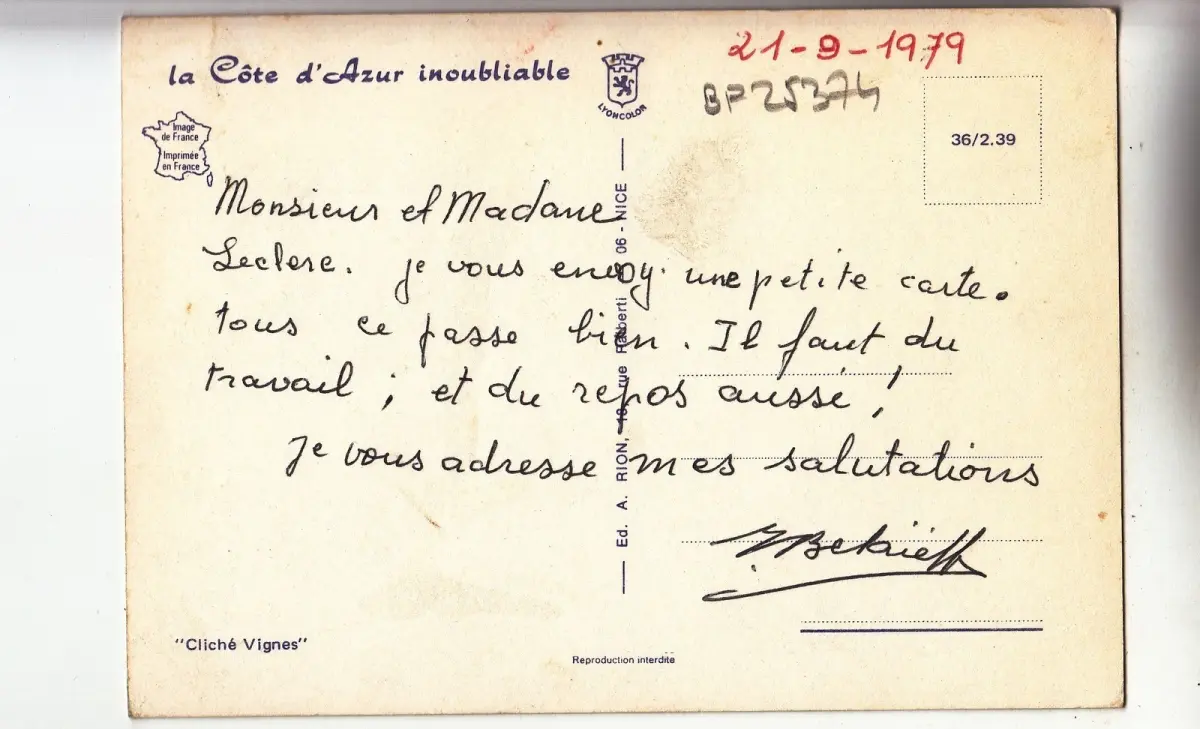 21-9-1979
la Côte d'Azur inoubliable
LYONCOLOR
BF25374
36/2.39
Image
de France
Imprimée
en France
Monsieur et Madame
Leclerc. je vous envoy. une petite carte.
tous ce passe bien. Il faut du
travail ; et du repos aussi !
Je vous adresse mes salutations
Ed. A. RION, rue Raiberti 06 - NICE
"Cliché Vignes"
Reproduction interdite